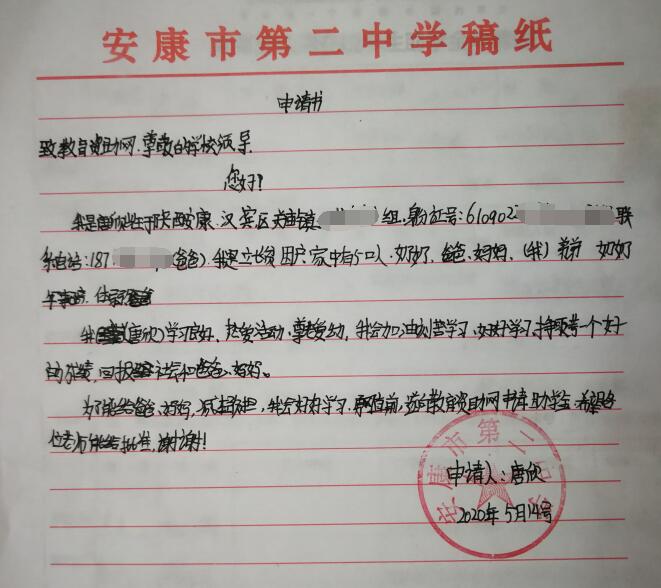 安康市第二中学稿纸
申请书
致教育资助网、尊敬的学校领导
您好！
我是唐欣住于陕西安康、汉滨区关庙镇 组。身份证号：610902 联
系电话：187 爸爸）。我是立贫困户家中有5口人、奶奶、爸爸、妈妈、（我） 奶奶
年事高，
我 （唐欣）学习良好，热爱活动，尊老爱幼，我会加油刻苦学习，好好学习，争取考一个好
的成绩，回报 社会和爸爸、妈妈。
为了能给爸爸、妈妈，减轻负担，我会好好学习。 教育资助网申请助学金，希望各
位 能给批准，谢谢！
申请人：唐欣
2020年5月14号
安康市第二中学